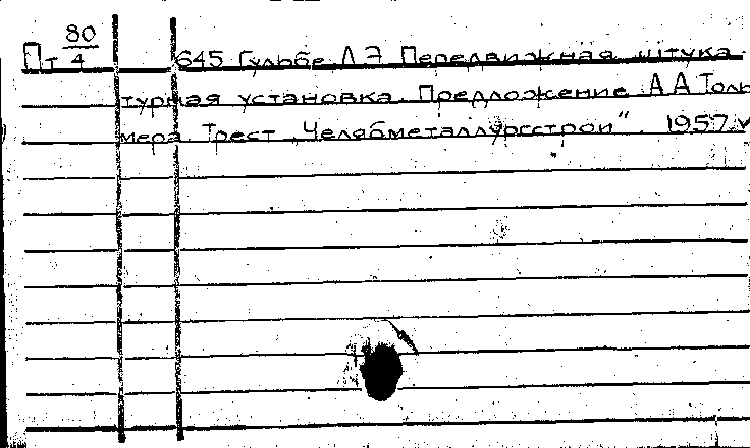 Пт 80/4 645 Гульбе Л Э Передвижная штука-
турная установка. Предложение А А Толь
мера. Трест „Челябметаллургстрой“. 1957.